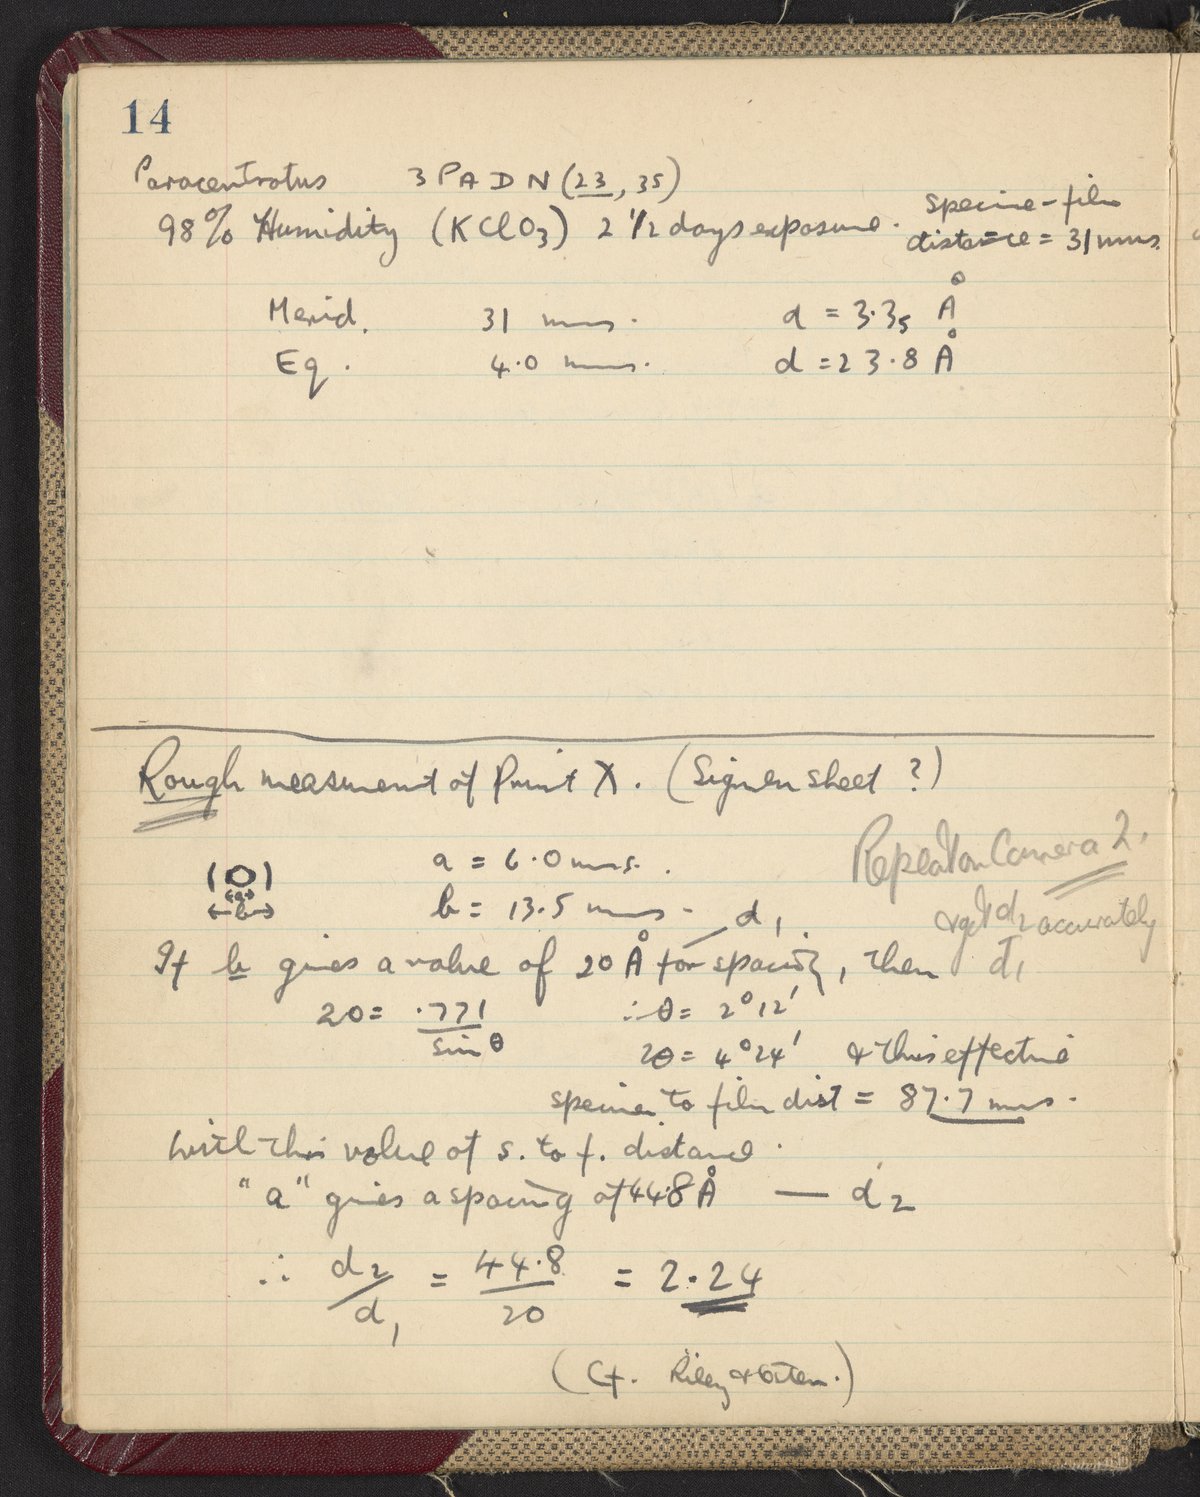 14
Paracentrotus 3PADN (23, 35)
98% Humidity (KClO3) 2 1/2 days exposure. specime-film
distance = 31 mms.
Merid. 31 mms. d = 3.35 Å
Eq. 4.0 mms. d = 23.8 Å
Rough measurement of Print X. (Signer sheet ?)
a = 6.0 mms.
b = 13.5 mms -
Repeat on Camera 2.
& get d2 accurately
(O)
a
b
d1
If b gives a value of 20 Å for spacing, then d1
20 = .771 / sin θ ∴ θ = 2°12'
2θ = 4°24' & this effective
specimen to film dist = 87.7 mms.
With this value of s. to f. distance.
"a" gives a spacing of 44.8 Å — d2
∴ d2/d1 = 44.8/20 = 2.24
(Cf. Riley & Oster.)